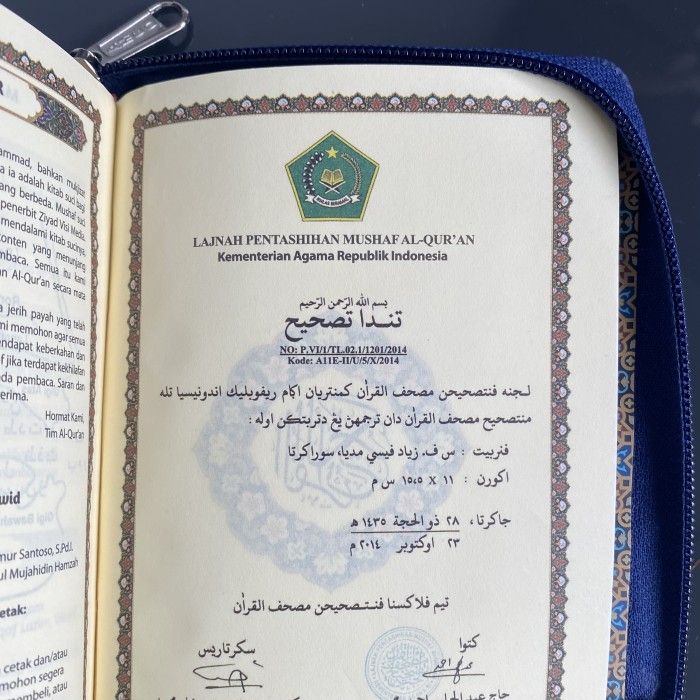 ammad, bahkan mukjizat
a ia adalah kitab suci bagi
ang berbeda. Mushaf suci
penerbit Ziyad Visi Media.
mendalami kitab sucinya,
onten yang menunjang
mbaca. Semua itu kami
n Al-Qur'an secara mata
a jerih payah yang telah
mi memohon agar semua
ndapat keberkahan dan
f jika terdapat kekhilafan
da pembaca. Saran dan
erima.
Hormat Kami,
Tim Al-Qur'an
wid
mur Santoso, S.Pd.I.
ul Mujahidin Hamzah
etak:
cetak dan/atau
mohon segera
mbeli, atau
IKHLAS BERAMAL
LAJNAH PENTASHIHAN MUSHAF AL-QUR'AN
Kementerian Agama Republik Indonesia
بسم الله الرّحمن الرّحيم
تندا تصحيح
NO: P.VI/1/TL.02.1/1201/2014
Kode: A11E-II/U/5/X/2014
لجنه فنتصحيحن مصحف القرأن كمنتريان اڬام ريفوبليك اندونيسيا تله
منتصحيح مصحف القرأن دان ترجمهن يڠ دتربتكن اوله :
فنربيت : س ف. زياد فيسي مديا، سوراكرتا
اكورن : ١١ X ١٥،٥ س م
جاكرتا، ٢٨ ذو الحجة ١٤٣٥ ه
٢٣ اوكتوبر ٢٠١٤ م
تيم فلاكسنا فنتصحيحن مصحف القرأن
كتوا
سكرتاريس